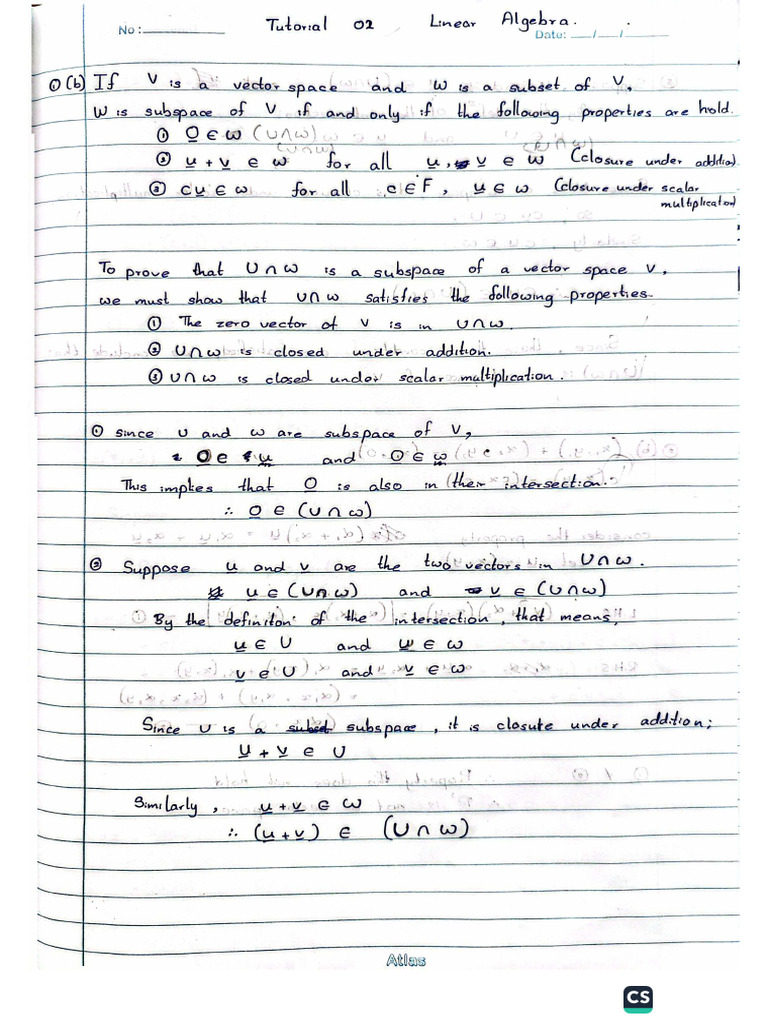 Tutorial 02 Linear Algebra.
No: Date: __/__/__
① (b) If V is a vector space and W is a subset of V,
W is subspace of V if and only if the following properties are hold.
① 0 ∈ W (U∩W)
(U∩W)
② u + v ∈ W for all u, v ∈ W (closure under addition)
③ cu ∈ W for all c ∈ F, u ∈ W (closure under scalar
multiplication)
To prove that U∩W is a subspace of a vector space V,
we must show that U∩W satisfies the following properties.
① The zero vector of V is in U∩W.
② U∩W is closed under addition.
③ U∩W is closed under scalar multiplication.
① since U and W are subspace of V,
0 ∈ u and 0 ∈ W
This implies that 0 is also in their intersection.
∴ 0 ∈ (U∩W)
② Suppose u and v are the two vectors in U∩W.
u ∈ (U∩W) and v ∈ (U∩W)
By the definiton of the intersection, that means,
u ∈ U and u ∈ W
v ∈ U and v ∈ W
Since U is a subspace, it is closute under addition;
u + v ∈ U
Similarly, u + v ∈ W
∴ (u + v) ∈ (U∩W)
Atlas
CS